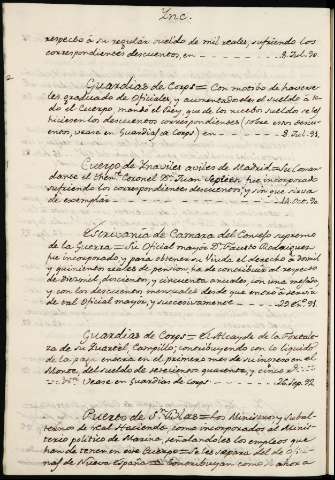 Inc.
respecto á su regular sueldo de mil reales, sufriendo los
correspondientes descuentos, en — 8. Jul. 90.
Guardias de Corps = Con motivo de haverse
les graduado de Oficiales, y aumentadoles el sueldo á to
do el Cuerpo, mandó el Rey, que de los nuevos sueldos se les
hiciesen los descuentos correspondientes (sobre esos descu-
entos, vease en Guardias de Corps) en — 8. Jul. 91.
Cuerpo de Inavilez aviles de Madrid = Su Coman
dante el Then.te Coronel D.n Juan Septien fue incorporado
sufriendo los correspondientes descuentos, y sin que sirva
de exemplar — 14. Oct. 90
Escrivania de Camara del Consejo supremo
de la Guerra = Su Oficial mayor D.n Fausto Rodriguez
fue incorporado, y para obtener su Viuda el derecho á dos mil
y quinientos reales de pension, ha de contribuir al respecto
de diezmil, doscientos, y cinquenta anuales, con una mesada
y con los descuentos mensuales desde que entró a servir
de tal Oficial mayor, y succesivamente — 91.
Guardias de Corps = El Alcayde de la Fortale
za de su Quartel Campillo, contribuyendo con el liquido
de la paga entera en el primero mes de su ingreso en el
Monte, del sueldo de setecientos quarenta, y cinco r.s
Vease en Guardias de Corps — 26. Sep. 92
Puerto de S.n Blas = Los Ministros, y Subal
ternos de Real Hacienda, como incorporados al Minis
terio politico de Marina, señalandoles los empleos que
han de tener en ese Cuerpo = Se les separa del de Ofi
nas de Nueva España = Contribuyan como hasta